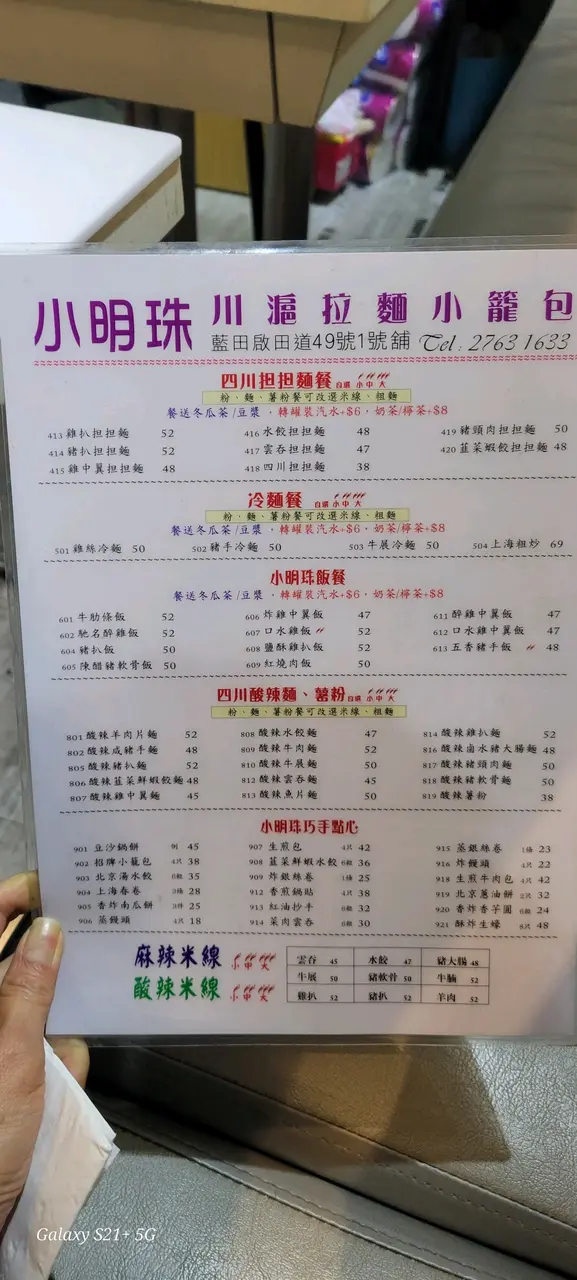 小明珠 川滬拉麵小籠包
藍田啟田道49號1號舖 Tel: 2763 1633
四川担担麵餐 自選 小 中 大
粉、麵、薯粉餐可改選米線、粗麵
餐送冬瓜茶/豆漿，轉罐裝汽水+$6，奶茶/檸茶+$8
413 雞扒担担麵 52 416 水餃担担麵 48 419 豬頸肉担担麵 50
414 豬扒担担麵 52 417 雲吞担担麵 47 420 韮菜蝦餃担担麵 48
415 雞中翼担担麵 48 418 四川担担麵 38
冷麵餐 自選 小 中 大
粉、麵、薯粉餐可改選米線、粗麵
餐送冬瓜茶/豆漿，轉罐裝汽水+$6，奶茶/檸茶+$8
501 雞絲冷麵 50 502 豬手冷麵 50 503 牛展冷麵 50 504 上海粗炒 69
小明珠飯餐
餐送冬瓜茶/豆漿，轉罐裝汽水+$6，奶茶/檸茶+$8
601 牛肋條飯 52 606 炸雞中翼飯 47 611 醉雞中翼飯 47
602 馳名醉雞飯 52 607 口水雞飯 52 612 口水雞中翼飯 47
604 豬扒飯 50 608 鹽酥雞扒飯 52 613 五香豬手飯 48
605 陳醋豬軟骨飯 50 609 紅燒肉飯 50
四川酸辣麵、薯粉 自選 小 中 大
粉、麵、薯粉餐可改選米線、粗麵
801 酸辣羊肉片麵 52 808 酸辣水餃麵 47 814 酸辣雞扒麵 52
802 酸辣咸豬手麵 48 809 酸辣牛肉麵 52 816 酸辣鹵水豬大腸麵 48
805 酸辣豬扒麵 52 810 酸辣牛展麵 50 817 酸辣豬頸肉麵 50
806 酸辣韮菜鮮蝦餃麵 48 812 酸辣雲吞麵 45 818 酸辣豬軟骨麵 50
807 酸辣雞中翼麵 45 813 酸辣魚片麵 50 819 酸辣薯粉 38
小明珠巧手點心
901 豆沙鍋餅 例 45 907 生煎包 4只 42 915 蒸銀絲卷 1條 23
902 招牌小籠包 4只 38 908 韮菜鮮蝦水餃 6粒 36 916 炸饅頭 4只 22
903 北京湯水餃 6粒 35 909 炸銀絲卷 1條 25 918 生煎牛肉包 4只 42
904 上海春卷 3條 28 912 香煎鍋貼 4只 38 919 北京蔥油餅 2只 32
905 香炸南瓜餅 3件 25 913 紅油抄手 6粒 32 920 香炸香芋圓 6粒 24
906 蒸饅頭 4只 18 914 菜肉雲吞 6粒 30 921 酥炸生蠔 5只 48
麻辣米線 小 中 大
酸辣米線 小 中 大
雲吞 45 水餃 47 豬大腸 48
牛展 50 豬軟骨 50 牛腩 52
雞扒 52 豬扒 52 羊肉 52
Galaxy S21+ 5G